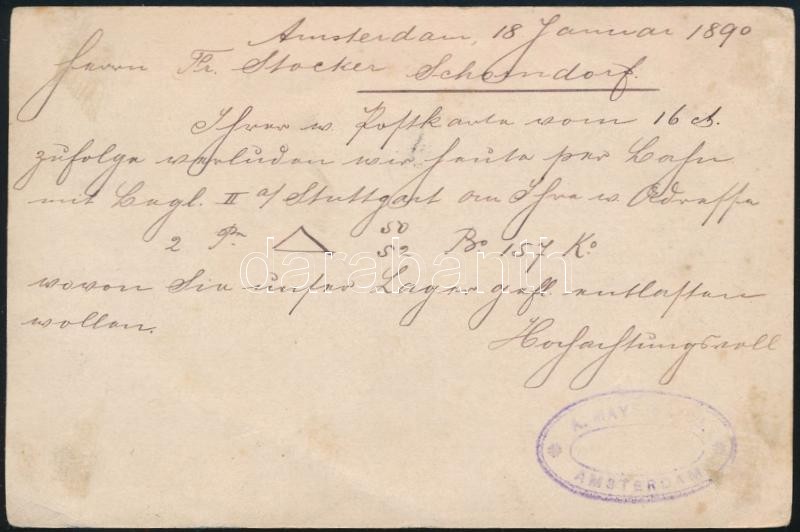 Amsterdam, 18 Januar 1890
Herrn Fr. Stocker Schorndorf.
Ihrer w. Postkarte vom 16 ct.
zufolge verluden wir heute per Bahn
mit Begl. II a/ Stuttgart an Ihre w. Adresse
2 Pn △ 50 52 Bo 157 Ko
wovon Sie unser Lager gefl. entlasten
wollen.
Hochachtungsvoll
AMSTERDAM
darabanth